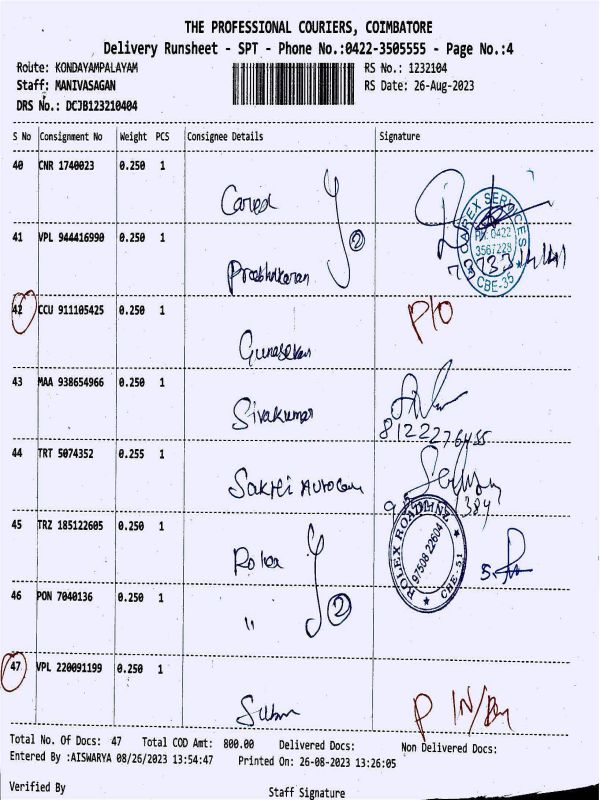 THE PROFESSIONAL COURIERS, COIMBATORE
Delivery Runsheet - SPT - Phone No.:0422-3505555 - Page No.:4
Route: KONDAYAMPALAYAM
RS No.: 1232104
Staff: MANIVASAGAN
RS Date: 26-Aug-2023
DRS No.: DCJB123210404
S No Consignment No Weight PCS Consignee Details Signature
40 CNR 1740023 0.250 1
41 VPL 944416990 0.250 1 Prabhakaran
②
CAIREX SERVICES
PH: 0422
3567228
CBE-35
42 CCU 911105425 0.250 1 Gunasekar P/O
43 MAA 938654966 0.250 1 Sivakumar
8122276455
44 TRT 5074352 0.255 1 Sakthi Autocom
384
45 TRZ 185122605 0.250 1 Rolex
ROLEX ROADLINZ
97508 22604
CBE-51
46 PON 7040136 0.250 1 "
②
47 VPL 220091199 0.250 1
Total No. Of Docs: 47 Total COD Amt: 800.00 Delivered Docs: Non Delivered Docs:
Entered By :AISWARYA 08/26/2023 13:54:47 Printed On: 26-08-2023 13:26:05
Verified By
Staff Signature